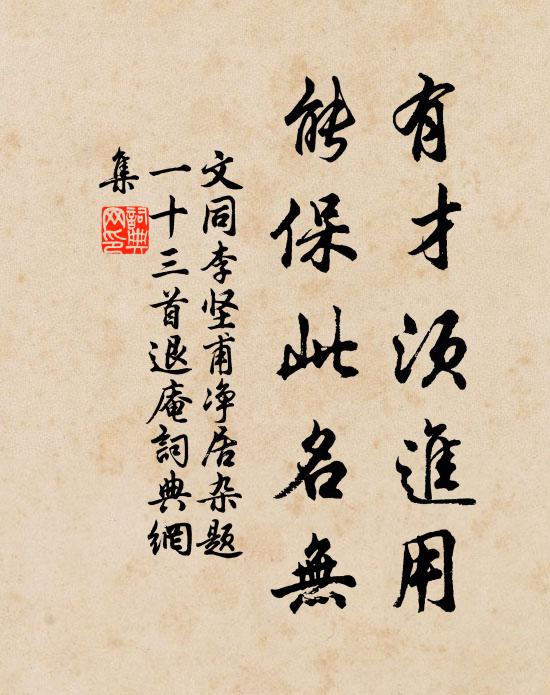 有才须進用
能保此名無
文同李坚甫净居杂题
一十三首退庵詞典網
集
詞典网印